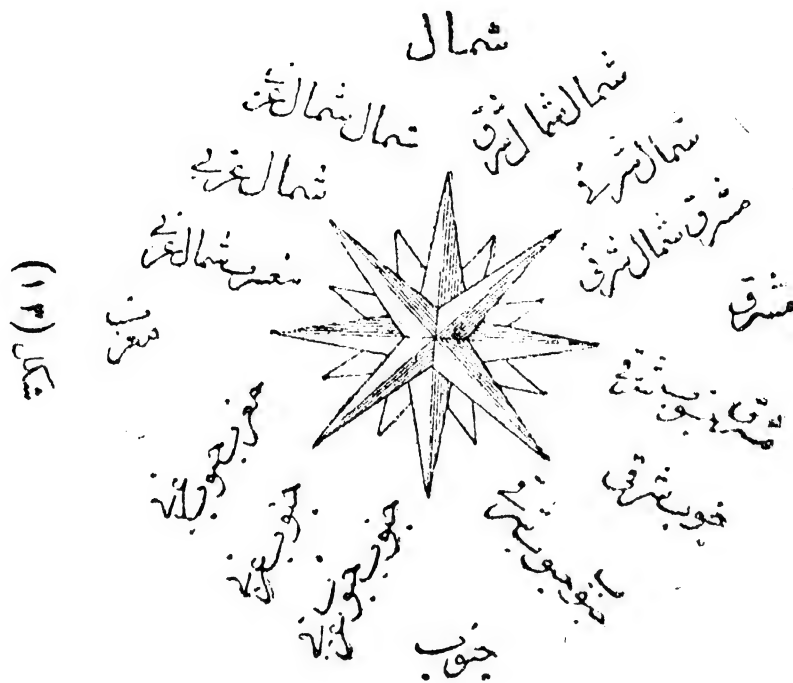 شمال
شمال شمال شرقی
شمال شرقی
مشرق شمال شرقی
مشرق
مشرق جنوب شرقی
جنوب شرقی
جنوب جنوب شرقی
جنوب
جنوب جنوب غربی
جنوب غربی
مغرب جنوب غربی
مغرب
مغرب شمال غربی
شمال غربی
شمال شمال غربی
شکل (١٣)